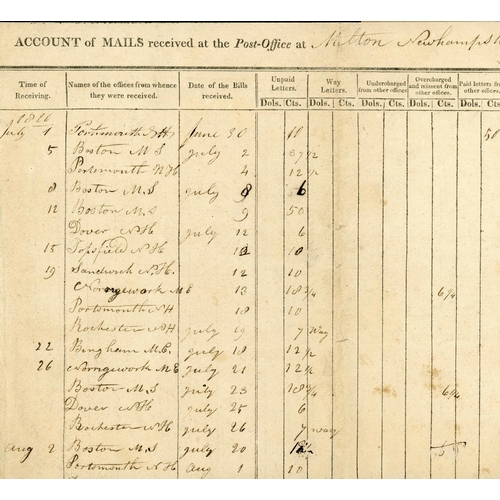 ACCOUNT of MAILS received at the Post-Office at Milton Newhampsh
Time of Receiving. Names of the offices from whence they were received. Date of the Bills received. Unpaid Letters. Way Letters. Undercharged from other offices. Overcharged and missent from other offices. Paid letters from other offices.
Dols. Cts. Dols. Cts. Dols. Cts. Dols. Cts. Dols. Cts.
1826
July 1 Portsmouth N H June 30 10 50
5 Boston M.S July 2 37 1/2
Portsmouth N H 4 12 1/2
8 Boston M.S July 8 6
12 Boston M.S 9 50
Dover N H July 12 6
15 Topsfield N H 10
19 Sandwich N.H. 12 10
Norrgework M E 13 18 3/4 6 1/4
Portsmouth N H 18 10
Rochester N H July 19 7 Way
22 Bingham M.E. July 18 12 1/2
26 Norrgework M E July 21 12 1/2
Boston M.S July 23 18 3/4 6 1/4
Dover N H July 25 6
Rochester N H July 26 7 way
Aug 2 Boston M.S July 20
Portsmouth N H Aug 1 10